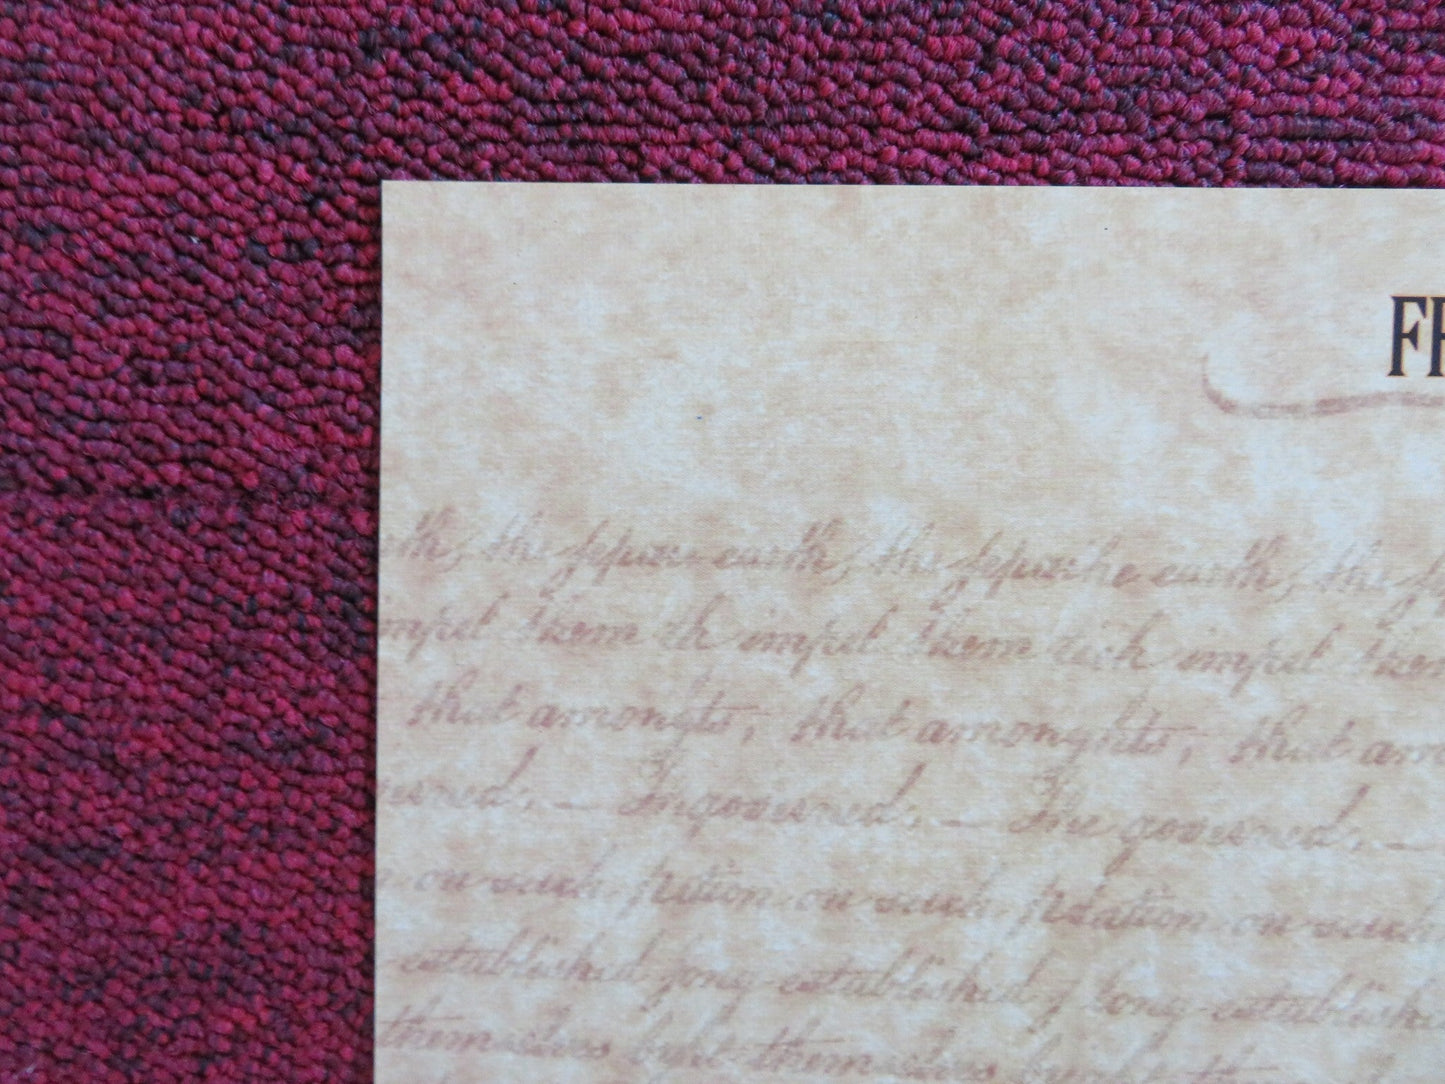 FR
th, the separe earth, the separthe earth, the s
mpel them ch impel them eich impel them
that amonghts, that amonghts, that am
erned. — Ingoverned. — The governed. —
on such. prtion on such. prdation on such
established long established long established
themselves but themselves